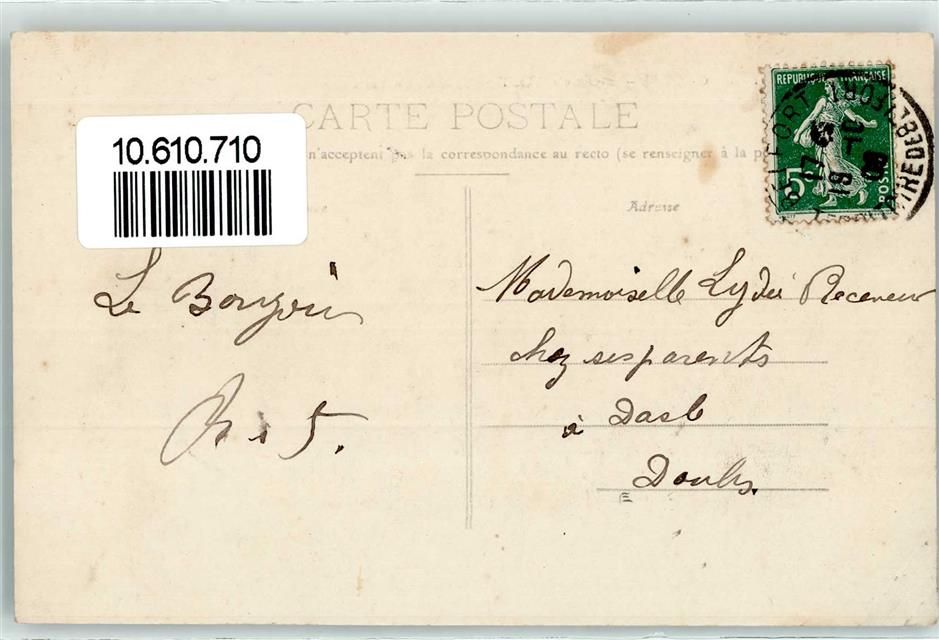 CARTE POSTALE
10.610.710
n'acceptent pas la correspondance au recto (se renseigner à la p
Adresse
REPUBLIQUE FRANÇAISE
5
POSTES
Le Bonjour
Mademoiselle Lydie Receveur
chez ses parents
à Dasle
Doubs.